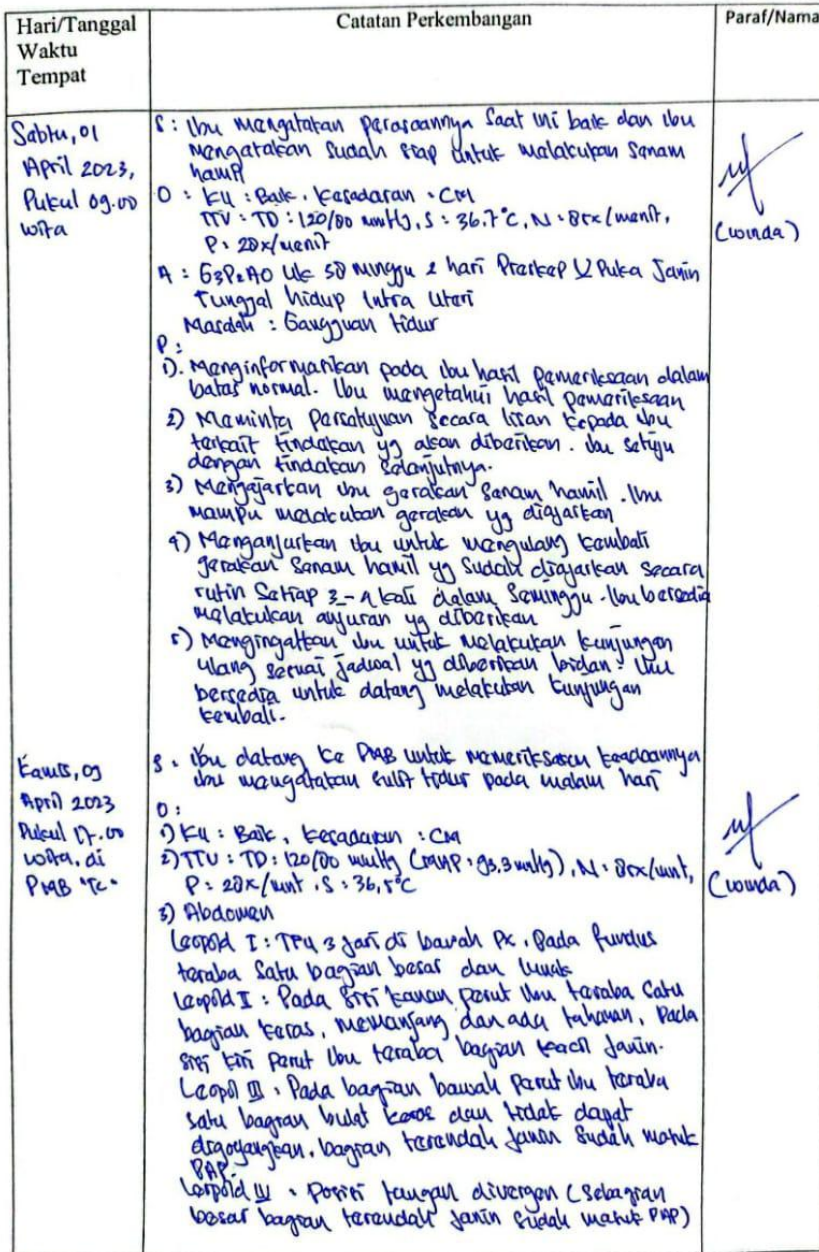 Hari/Tanggal
Waktu
Tempat
Catatan Perkembangan
Paraf/Nama
Sabtu, 01
April 2023,
Pukul 09.00
wita
S : Ibu mengatakan perasaannya saat ini baik dan ibu
mengatakan sudah siap untuk melakukan senam
hamil
O : KU : Baik, Kesadaran : CM
TTV : TD : 120/80 mmHg, S : 36.7°C, N : 85x/menit,
P : 20x/menit
A : G3P2A0 UK 38 minggu 2 hari Preskep U Puka Janin
Tunggal hidup Intra Uteri
Masalah : Gangguan tidur
P :
1). Menginformasikan pada ibu hasil pemeriksaan dalam
batas normal. Ibu mengetahui hasil pemeriksaan
2) Meminta persetujuan secara lisan kepada ibu
terkait tindakan yg akan diberikan. Ibu setuju
dengan tindakan selanjutnya.
3) Mengajarkan ibu gerakan senam hamil. Ibu
mampu melakukan gerakan yg diajarkan
4) Menganjurkan ibu untuk mengulang kembali
gerakan senam hamil yg sudah diajarkan secara
rutin setiap 3-4 kali dalam seminggu. Ibu bersedia
melakukan anjuran yg diberikan
5) Mengingatkan ibu untuk melakukan kunjungan
ulang sesuai jadwal yg diberikan bidan. Ibu
bersedia untuk datang melakukan kunjungan
kembali.
(winda)
Kamis, 09
April 2023
Pukul 17.00
wita, di
PMB "TC"
S : Ibu datang ke PMB untuk memeriksakan keadaannya
ibu mengatakan sulit tidur pada malam hari
O :
1) KU : Baik, kesadaran : CM
2) TTV : TD : 120/80 mmHg (MAP : 93.3 mmHg), N : 85x/mnt,
P : 20x/mnt, S : 36,5°C
3) Abdomen
Leopold I : TFU 3 jari di bawah Px. Pada fundus
teraba satu bagian besar dan lunak
Leopold II : Pada sisi kanan perut ibu teraba satu
bagian keras, memanjang dan ada tahanan, Pada
sisi kiri perut ibu teraba bagian kecil janin.
Leopol III : Pada bagian bawah perut ibu teraba
satu bagian bulat keras dan tidak dapat
digoyangkan, bagian terendah janin sudah masuk
PAP.
Leopold IV : Posisi tangan divergen (sebagian
besar bagian terendah janin sudah masuk PAP)
(winda)